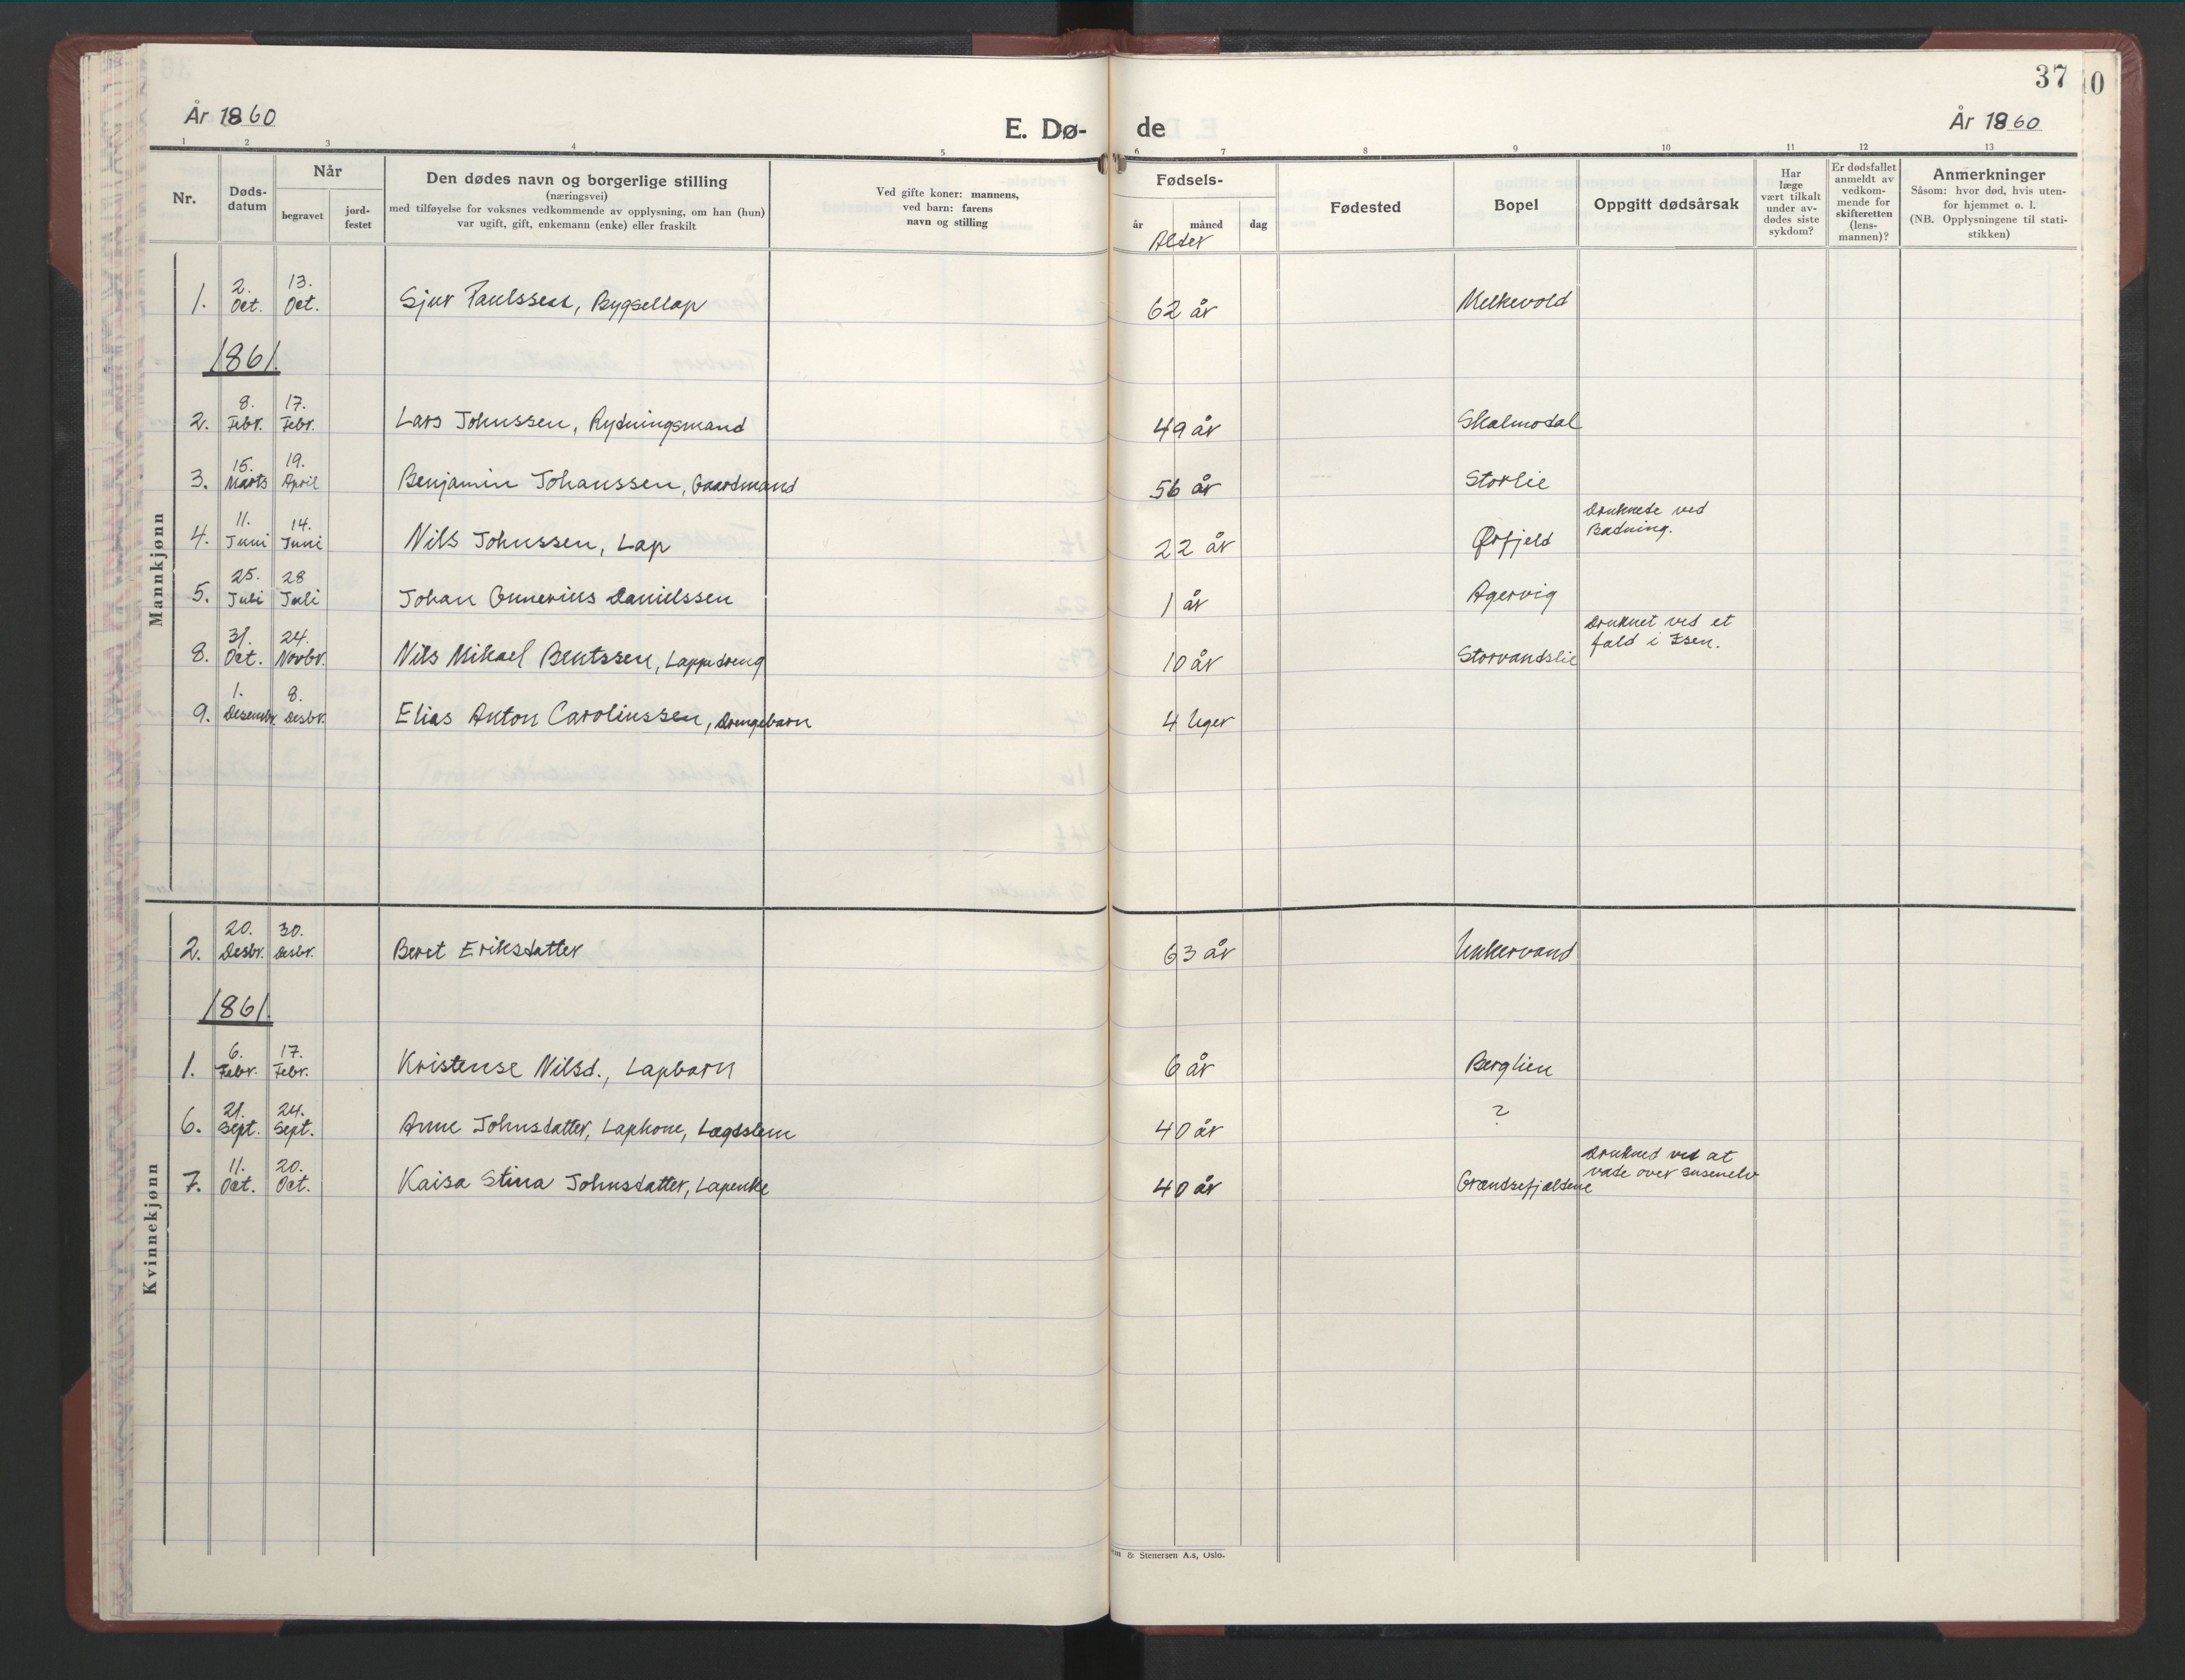 37
0
År 1860
E. Dø- de
År 1860
1 2 3 4 5 6 7 8 9 10 11 12 13
Nr.
Døds-
datum
Når
begravet
jord-
festet
Den dødes navn og borgerlige stilling
(næringsvei)
med tilføyelse for voksnes vedkommende av opplysning, om han (hun)
var ugift, gift, enkemann (enke) eller fraskilt
Ved gifte koner: mannens,
ved barn: farens
navn og stilling
Fødsels-
år måned dag
Alder
Fødested
Bopel
Oppgitt dødsårsak
Har
læge
vært tilkalt
under av-
dødes siste
sykdom?
Er dødsfallet
anmeldt av
vedkom-
mende for
skifteretten
(lens-
mannen)?
Anmerkninger
Såsom: hvor død, hvis uten-
for hjemmet o. l.
(NB. Opplysningene til stati-
stikken)
Mannkjønn
1. 2. Oct. 13. Oct. Sjur Paulssen, Bygsellap 62 år Melkevold
1861
2. 8. Febr. 17. Febr. Lars Johnssen, Rydningsmand 49 år Skalmodal
3. 15. Marts 19. April Benjamin Johanssen, Gaardmand 56 år Storlie
4. 11. Juni 14. Juni Nils Johnssen, Lap 22 årØrfjeld Druknede ved
Badning.
5. 25. Juli 28 Juli Johan Gunerius Danielssen 1 år Agervig
8. 31. Oct. 24. Novbr. Nils Mikael Bentssen, Lappedreng 10 år Storvandslie Druknet ved et
fald i Isen.
9. 1. Desembr. 8. Desbr. Elias Anton Carolinssen, Drengebarn 4 Uger
Kvinnekjønn
2. 20. Desbr. 30. Desbr. Beret Eriksdatter 63 år Unkervand
1861
1. 6. Febr. 17. Febr. Kristense Nilsd., Lapbarn 6 år Berglien
6. 21. Sept. 24. Sept. Anne Johnsdatter, Lapkone, Lægdslem 40 år ?
7. 11. Oct. 20. Oct. Kaisa Stina Johnsdatter, Lapenke 40 år Grændsefjældene Drukned ved at
vade over Susenelv
& Stenersen A.s, Oslo.